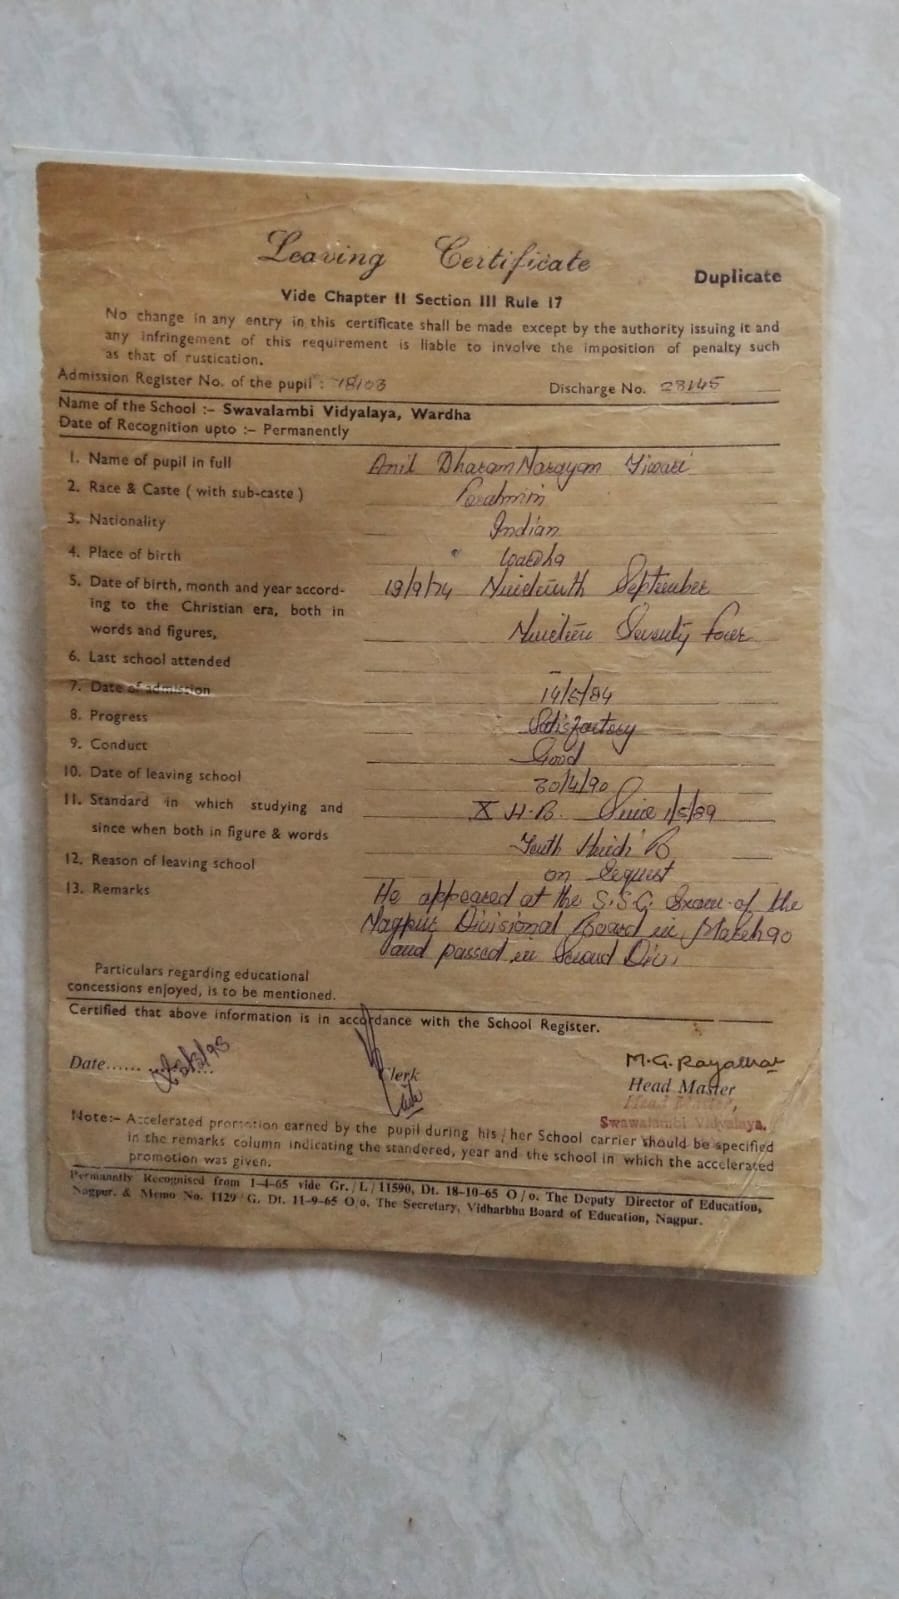 Leaving Certificate
Duplicate
Vide Chapter II Section III Rule 17
No change in any entry in this certificate shall be made except by the authority issuing it and
any infringement of this requirement is liable to involve the imposition of penalty such
as that of rustication.
Admission Register No. of the pupil : 18103 Discharge No. 23145
Name of the School :- Swavalambi Vidyalaya, Wardha
Date of Recognition upto :- Permanently
1. Name of pupil in full Anil DharamNarayan Tiwari
2. Race & Caste ( with sub-caste )
3. Nationality Indian
4. Place of birth Wardha
5. Date of birth, month and year accord- 19/9/74 Nineteenth September
ing to the Christian era, both in
words and figures, Nineteen Seventy Four
6. Last school attended –
7. Date of admission 14/5/84
8. Progress Satisfactory
9. Conduct Good
10. Date of leaving school 30/4/90
11. Standard in which studying and X H.B. Since 1/5/89
since when both in figure & words Tenth Hindi B
12. Reason of leaving school on request
13. Remarks He appeared at the S.S.C. Exam of the
Nagpur Divisional Board in March 90
and passed in Second Div.
Particulars regarding educational
concessions enjoyed, is to be mentioned.
Certified that above information is in accordance with the School Register.
Date......
Clerk
M.G.
Head Master
Head Master,
Swawalambi Vidyalaya.
Note:- Accelerated promotion earned by the pupil during his / her School carrier should be specified
in the remarks column indicating the standered, year and the school in which the accelerated
promotion was given.
Permanntly Recognised from 1-4-65 vide Gr. / L / 11590, Dt. 18-10-65 O / o. The Deputy Director of Education,
Nagpur. & Memo No. 1129 / G. Dt. 11-9-65 O/o. The Secretary, Vidharbha Board of Education, Nagpur.